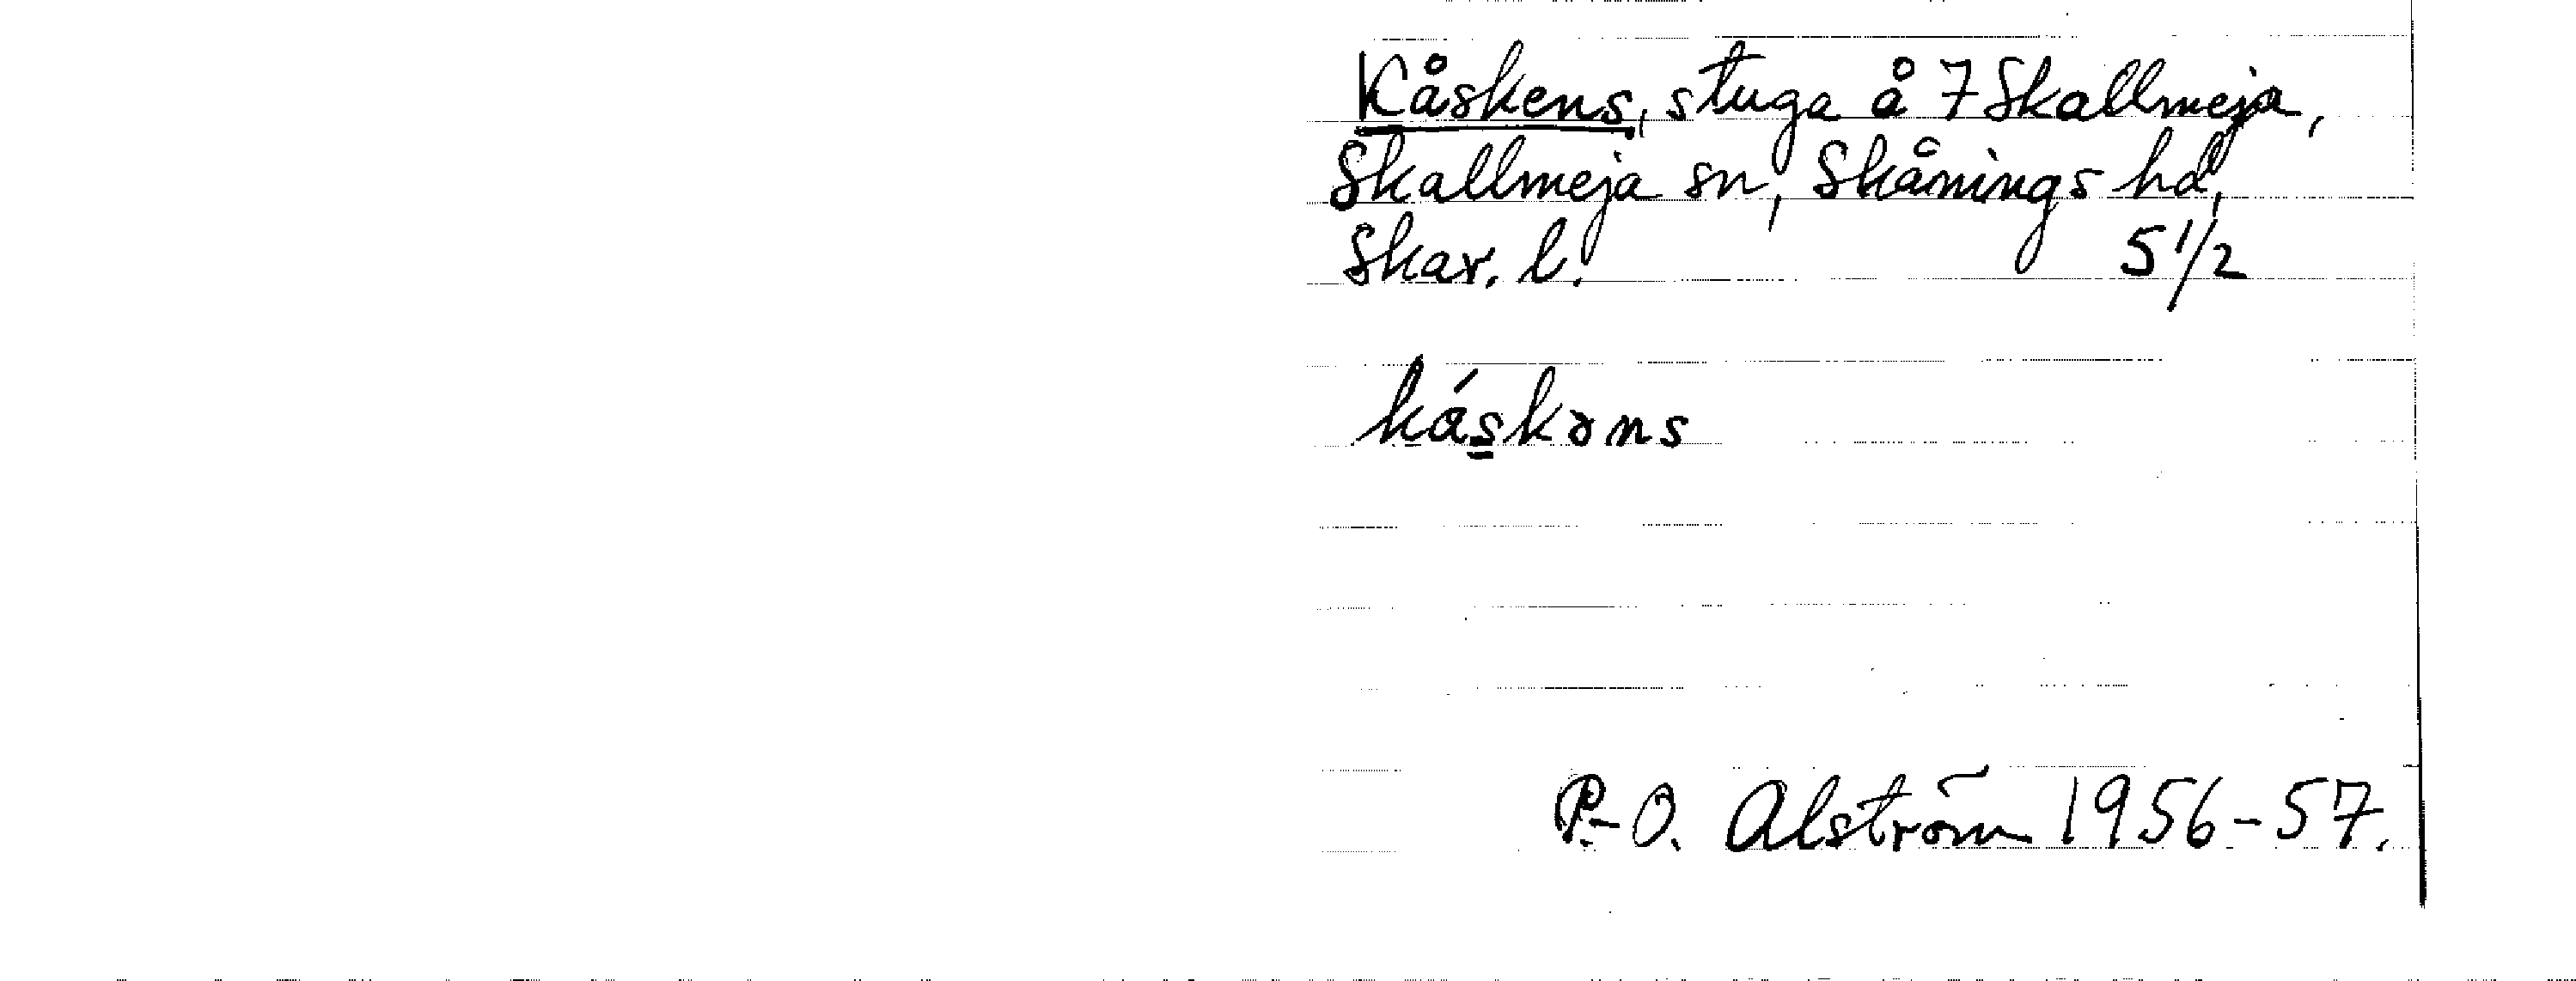 Kåskens, stuga å 7 Skallmeja,
Skallmeja sn, Skånings hd,
Skar. l. 5 1/2
káskəns
P.-O. Alström 1956-57.